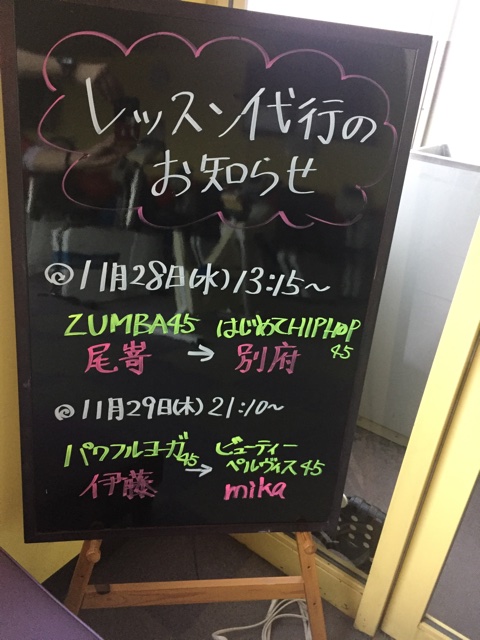 レッスン代行の
お知らせ
11月28日(水)13:15〜
ZUMBA45 はじめてHIPHOP45
尾嵜 → 別府
11月29日(木)21:10〜
パワフルヨガ45 → ビューティーペルヴィス45
伊藤 mika